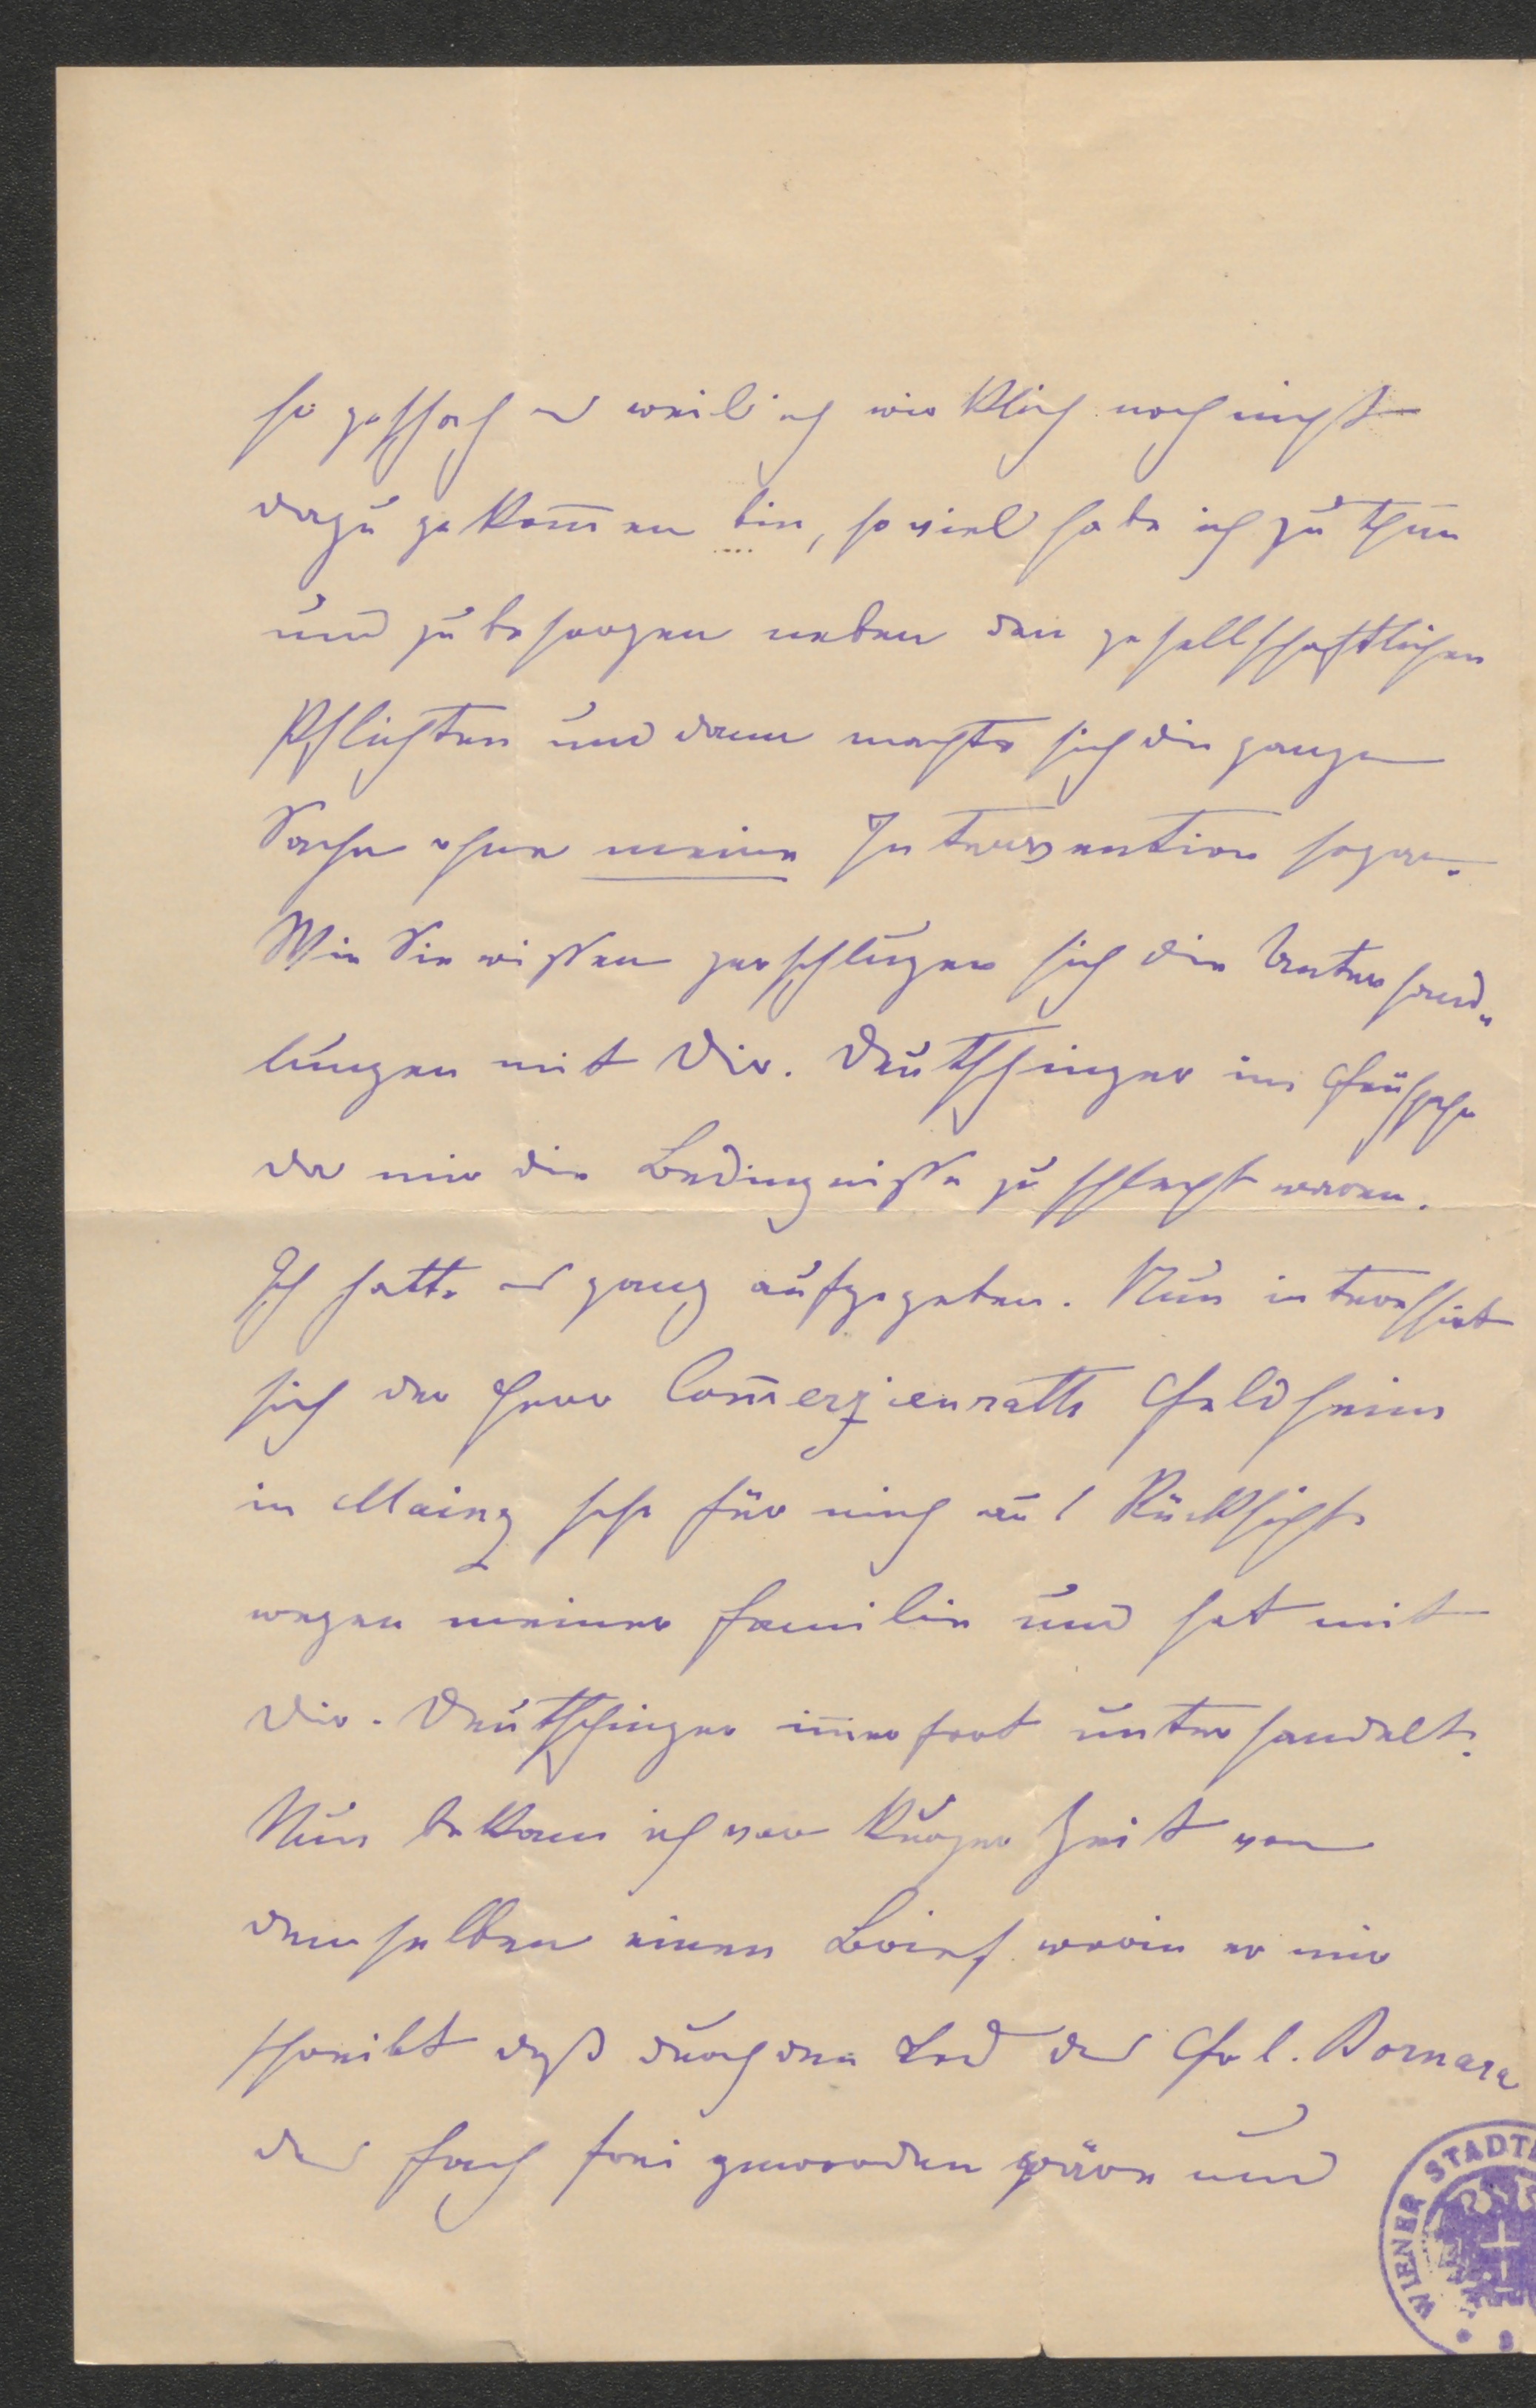 so geschah es weil ich wirklich noch nicht
dazu gekom̅en bin, so viel habe ich zu thun
und zu besorgen neben den gesellschaftlichen
Pflichten und dann machte sich die ganze
Sache ohne meine Intervention sogar.
Wie Sie wissen zerschlugen sich die Unterhand„
lungen mit Dir. Deutschinger im Frühjahr
da mir die Bedingnisse zu schlecht waren.
Ich hatte es ganz aufgegeben. Nun interessirt
sich der Herr Com̅erzienrath Feldheim
in Mainz sehr für mich aus Rücksicht
wegen meiner Familie und hat mit
Dir. Deutschinger im̅erfort unterhandelt.
Nun bekam ich vor kurzer Zeit von
demselben einen Brief worin er mir
schreibt daß durch den Tod des Frl.
das Fach frei geworden wäre und
WIENER STADT